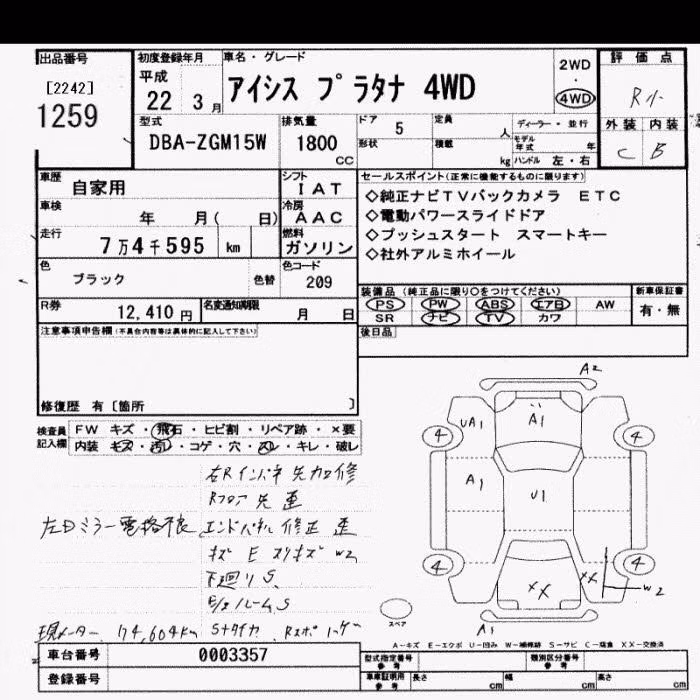 出品番号 初度登録年月 車名・グレード 評価点
[2242]
1259
平成
22 3月
アイシス プラタナ 4WD
2WD
4WD
外装 内装
C B
型式
DBA-ZGM15W
排気量
1800
CC
ドア 5 定員 人 ディーラー・並行
形状 積載 kg モデル年式 年
ハンドル 左・右
車歴
自家用
シフト
IAT
車検
年 月( 日)
冷房
AAC
走行
7万4千595 km
燃料
ガソリン
色
ブラック
色替
色コード
209
R券
12,410円
名変通知期限
月 日
セールスポイント(正常に機能するものに限ります)
◇純正ナビTVバックカメラ ETC
◇電動パワースライドドア
◇プッシュスタート スマートキー
◇社外アルミホイール
装備品(純正品に限り○をつけてください) 新車保証書
PS PW ABS エアB AW 有・無
SR ナビ TV カワ
後日品
注意事項申告欄(不具合内容等は具体的に記入して下さい)
修復歴 有 [箇所 ]
検査員記入欄
FW キズ・飛石・ヒビ割・リペア跡・×要
内装 キズ・汚れ・コゲ・穴・スレ・キレ・破レ
Rフロア
左Dミラー電格不良 エンドパネル 修正
キズ E スリキズ W2
下廻りS
現メーター 74,604km
A2
UA1
A1
4
4
A1
U1
4
4
XX
XX
W2
A1
スペア
A-キズ E-エクボ U-凹み W-補修跡 S-サビ C-腐食 XX-交換済
車台番号 0003357
登録番号
型式指定番号 参考 類別区分番号 参考
車庫証明用 参考 長さ cm 幅 cm 高さ cm